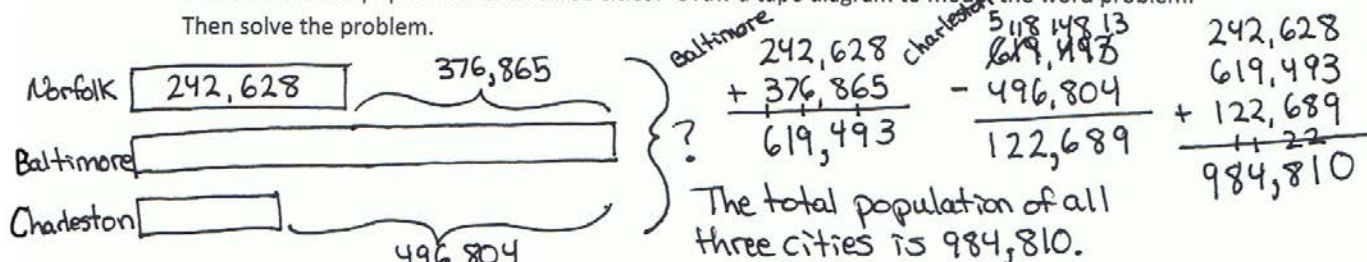 Then solve the problem.
Norfolk 242,628 376,865
Baltimore
Charleston
496,804
?
Baltimore
242,628
+ 376,865
619,493
Charleston
5 11 8 14 8 13
619,493
- 496,804
122,689
242,628
619,493
+ 122,689
1 1 2 2
984,810
The total population of all
three cities is 984,810.